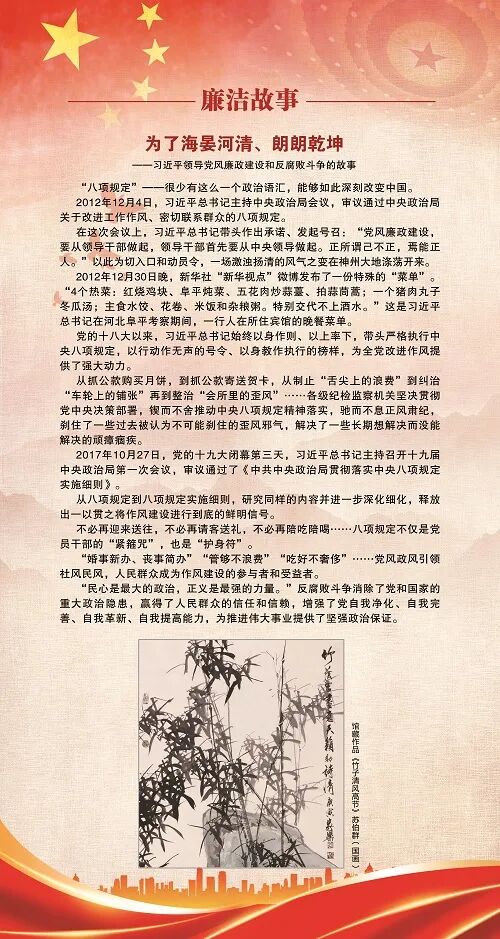 廉洁故事
为了海晏河清、朗朗乾坤
——习近平领导党风廉政建设和反腐败斗争的故事
“八项规定”——很少有这么一个政治语汇，能够如此深刻改变中国。
2012年12月4日，习近平总书记主持中央政治局会议，审议通过中央政治局
关于改进工作作风、密切联系群众的八项规定。
在这次会议上，习近平总书记带头作出承诺、发起号召：“党风廉政建设，
要从领导干部做起，领导干部首先要从中央领导做起。正所谓己不正，焉能正
人。”以此为切入口和动员令，一场激浊扬清的风气之变在神州大地涤荡开来。
2012年12月30日晚，新华社“新华视点”微博发布了一份特殊的“菜单”。
“4个热菜：红烧鸡块、阜平炖菜、五花肉炒蒜薹、拍蒜茼蒿；一个猪肉丸子
冬瓜汤；主食水饺、花卷、米饭和杂粮粥。特别交代不上酒水。”这是习近平
总书记在河北阜平考察期间，一行人在所住宾馆的晚餐菜单。
党的十八大以来，习近平总书记始终以身作则、以上率下，带头严格执行中
央八项规定，以行动作无声的号令、以身教作执行的榜样，为全党改进作风提
供了强大动力。
从抓公款购买月饼，到抓公款寄送贺卡，从制止“舌尖上的浪费”到纠治
“车轮上的铺张”再到整治“会所里的歪风”……各级纪检监察机关坚决贯彻
党中央决策部署，锲而不舍推动中央八项规定精神落实，驰而不息正风肃纪，
刹住了一些过去被认为不可能刹住的歪风邪气，解决了一些长期想解决而没能
解决的顽瘴痼疾。
2017年10月27日，党的十九大闭幕第三天，习近平总书记主持召开十九届
中央政治局第一次会议，审议通过了《中共中央政治局贯彻落实中央八项规定
实施细则》。
从八项规定到八项规定实施细则，研究同样的内容并进一步深化细化，释放
出一以贯之将作风建设进行到底的鲜明信号。
不必再迎来送往，不必再请客送礼，不必再陪吃陪喝……八项规定不仅是党
员干部的“紧箍咒”，也是“护身符”。
“婚事新办、丧事简办”“管够不浪费”“吃好不奢侈”……党风政风引领
社风民风，人民群众成为作风建设的参与者和受益者。
“民心是最大的政治，正义是最强的力量。”反腐败斗争消除了党和国家的
重大政治隐患，赢得了人民群众的信任和信赖，增强了党自我净化、自我完
善、自我革新、自我提高能力，为推进伟大事业提供了坚强政治保证。
馆藏作品《竹子清风高节》苏伯群（国画）